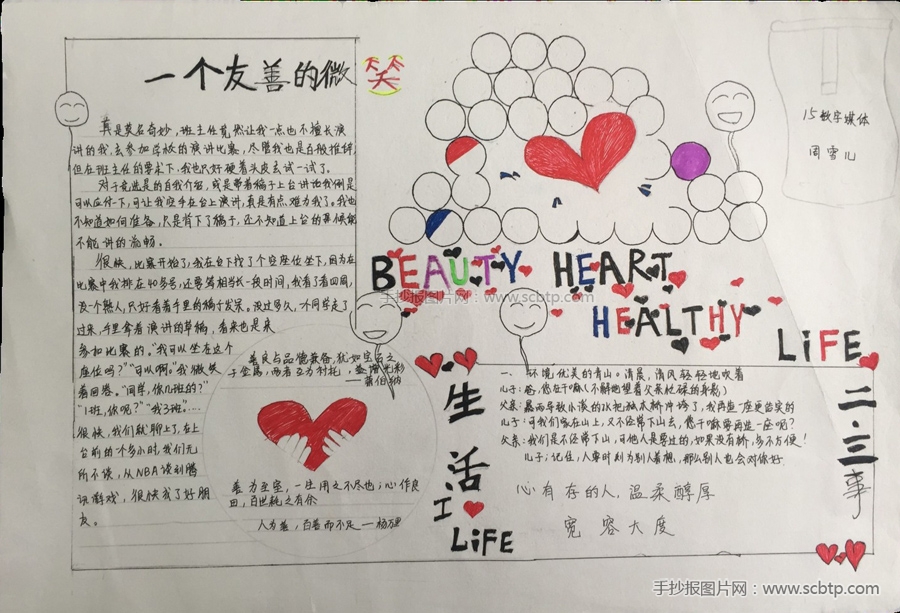 一个友善的微笑
真是莫名奇妙,班主任竟然让我一点也不擅长演
讲的我,去参加学校的演讲比赛,尽管我也是百般推辞,
但在班主任的要求下,我也只好硬着头皮去试一试了。
对于竞选是的自我介绍,或是带着稿子上台讲话我倒是
可以应付一下,可让我空手在台上演讲,真是有点难为我了。我也
不知道如何准备,只是背下了稿子,还不知道上台的时候能
不能讲的流畅。
很快,比赛开始了,我在台下找了个空座位坐下,因为在
比赛中我排在40多号,还要等相当长一段时间,我看了看四周,
没一个熟人,只好看着手里的稿子发呆。没过多久,一个同学走了
过来,手里拿着演讲的草稿,看来也是来
参加比赛的。“我可以坐在这个
座位吗?”“可以啊。”我微笑
着回答。“同学,你几班的?”
“1班,你呢?”“我3班。”……
很快,我们就聊上了,在上
台前的一个多小时,我们无
所不谈,从NBA谈到腾
讯游戏,很快成了好朋
友。
善良与品德兼备,犹如宝石之
于金属,两者互为衬托,益增光彩
——萧伯纳
善为至宝,一生用之不尽也;心作良
田,百世耕之有余
人为善,百善而不足——杨万里
15数字媒体
周雪儿
BEAUTY HEART
HEALTHY
LiFE
手抄报图片网:www.scbtp.com
生活
I
LiFE
一、环境优美的青山。清晨,清风轻轻地吹着
儿子:爸,您在干嘛(不解地望着父亲忙碌的身影)
父亲:暴雨导致小溪的水把独木桥冲垮了,我再造一座更结实的
儿子:可我们家在山上,又不经常下山去,您干嘛要再造一座呢?
父亲:我们是不经常下山,可他人是要过的,如果没有桥,多不方便!
儿子:记住,人要时刻为别人着想,那么别人也会对你好
心有存的人,温柔醇厚
宽容大度
二·三事
手抄报图片网:www.scbtp.com